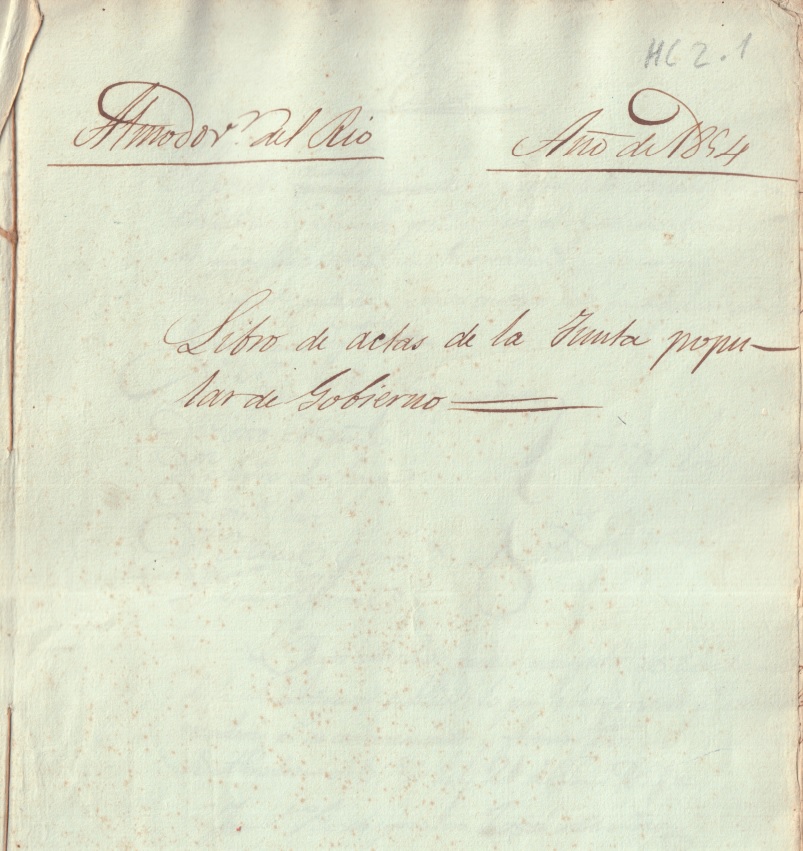 H62.1
Almodov.r del Rio
Año de 1854
Libro de actas de la Junta popu-
lar de Gobierno